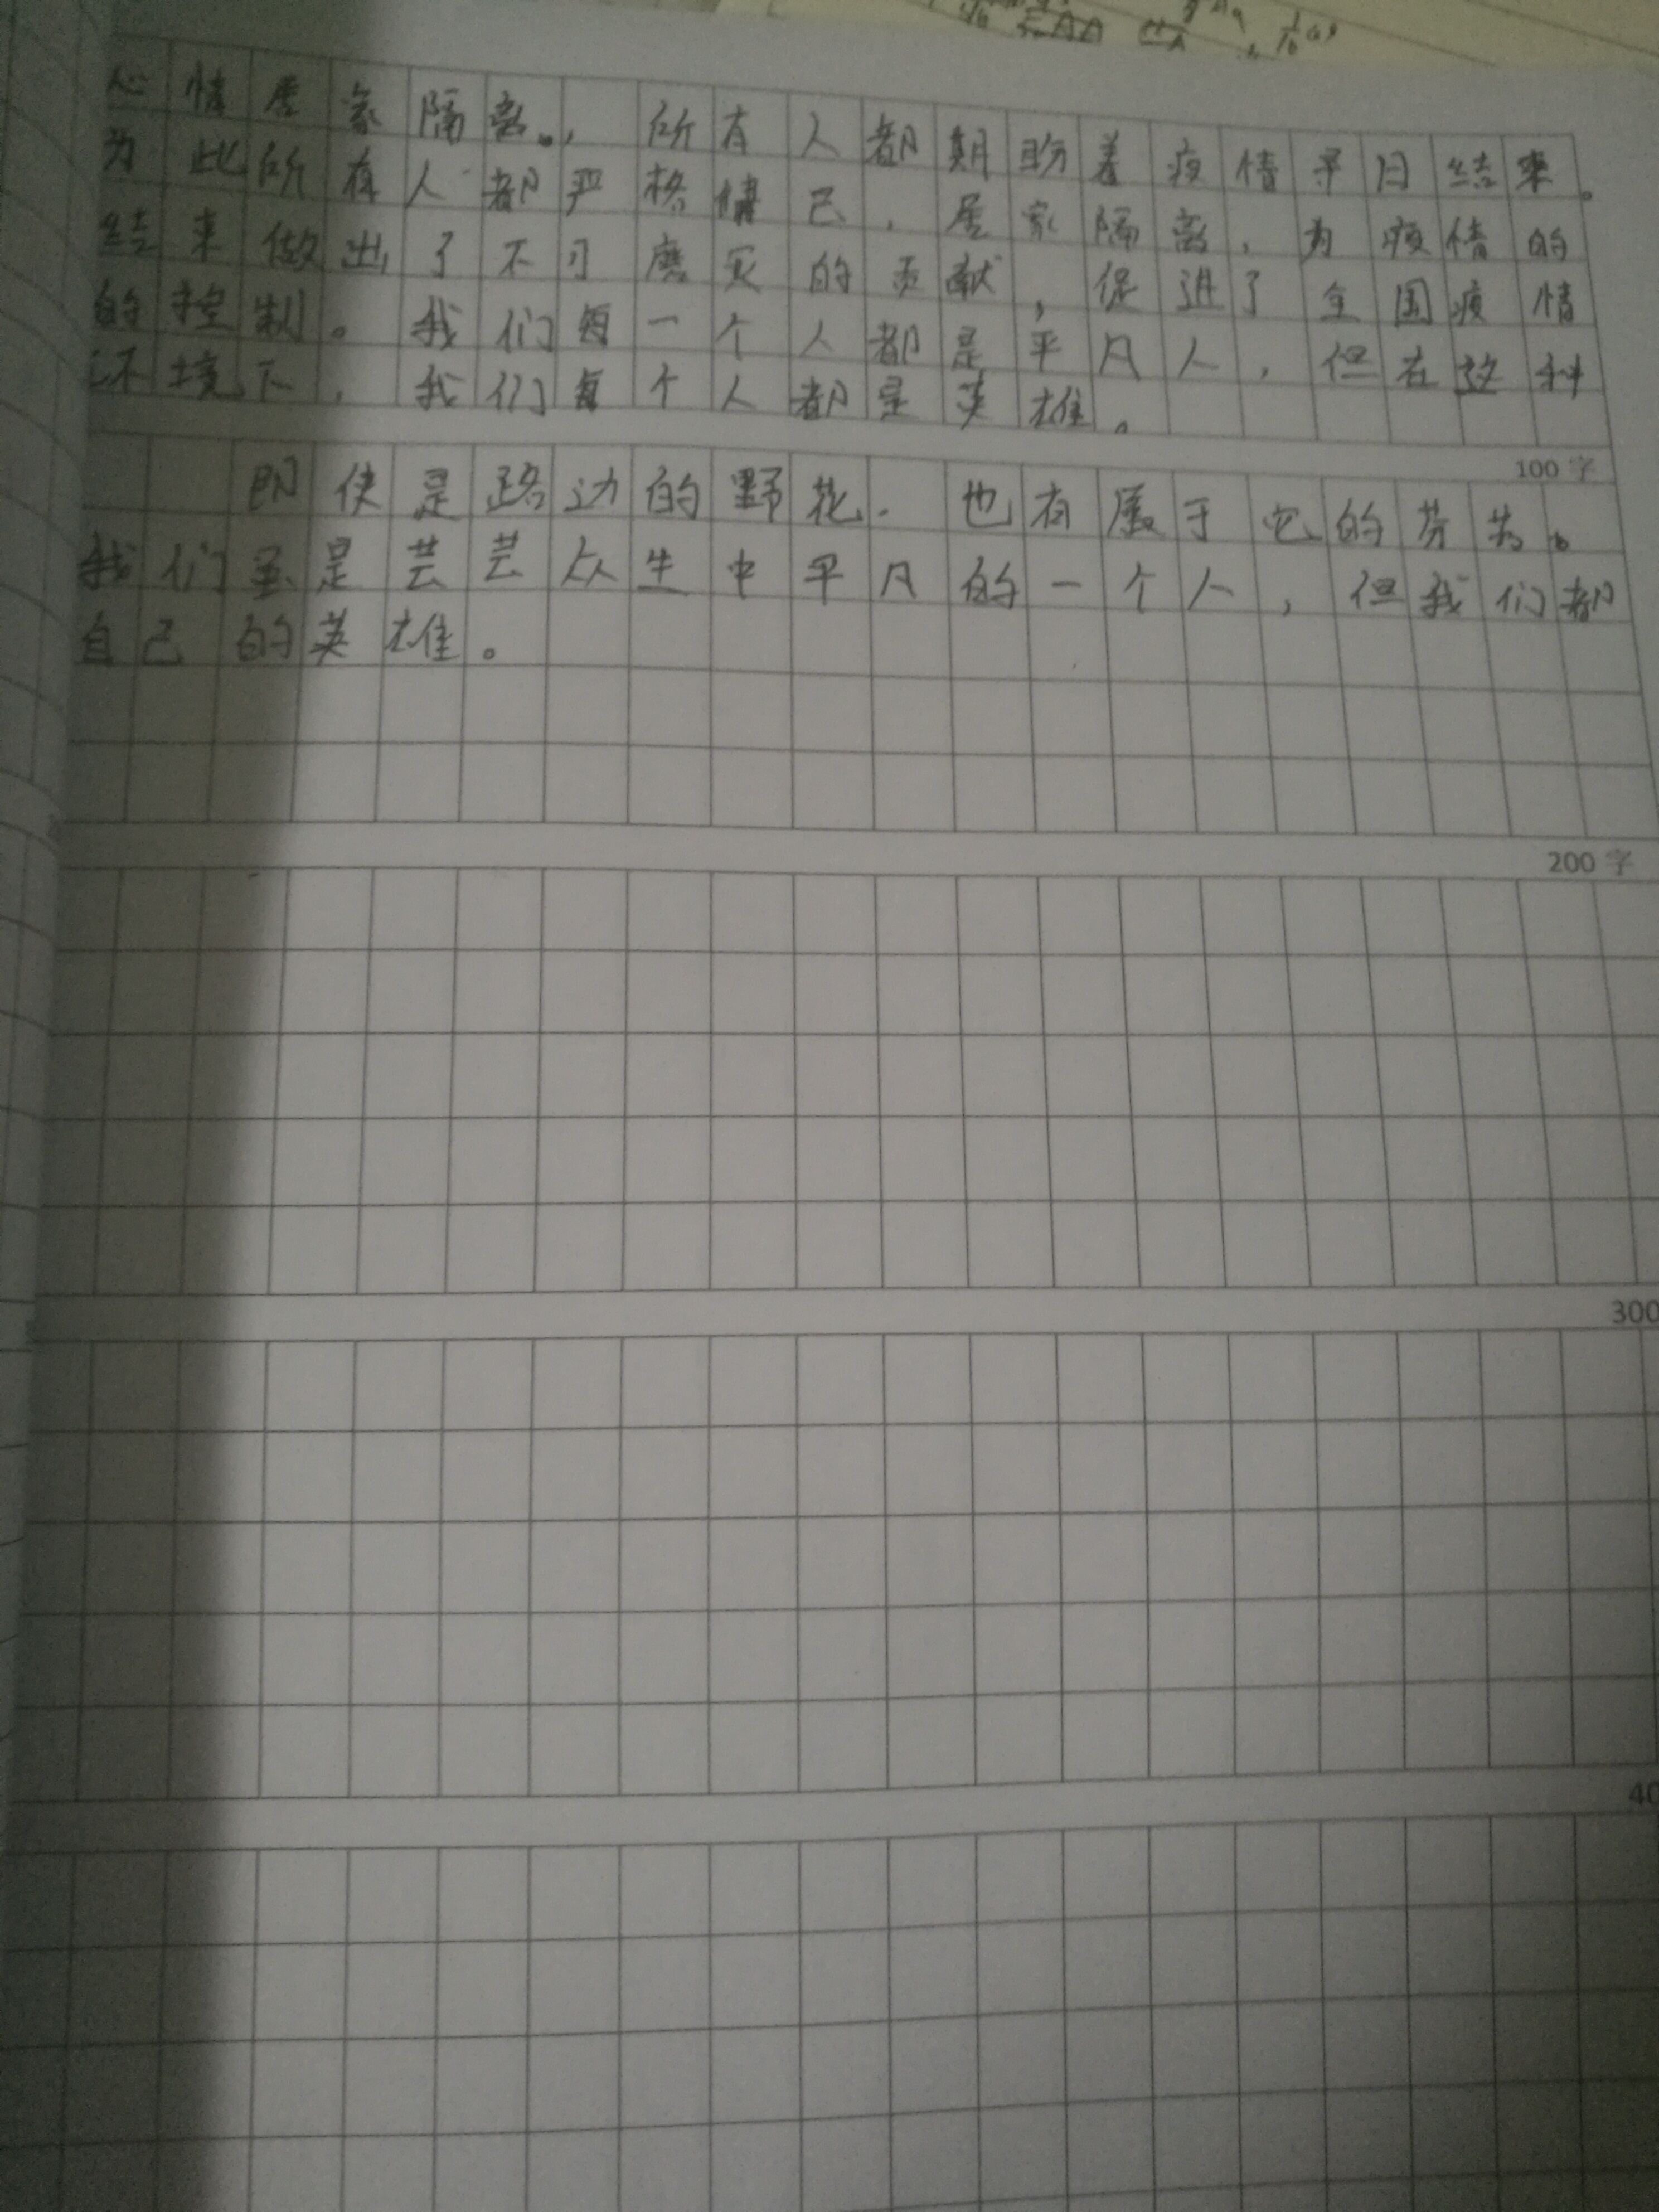 心情居家隔离。，所有人都期盼着疫情早日结束。
为此所有人都严格律己，居家隔离，为疫情的
结束做出了不可磨灭的贡献，促进了全国疫情
的控制。我们每一个人都是平凡人，但在这种
环境下，我们每个人都是英雄。
100字
即使是路边的野花．也有属于它的芬芳。
我们虽是芸芸众生中平凡的一个人，但我们都
自己的英雄。
200字
300
40